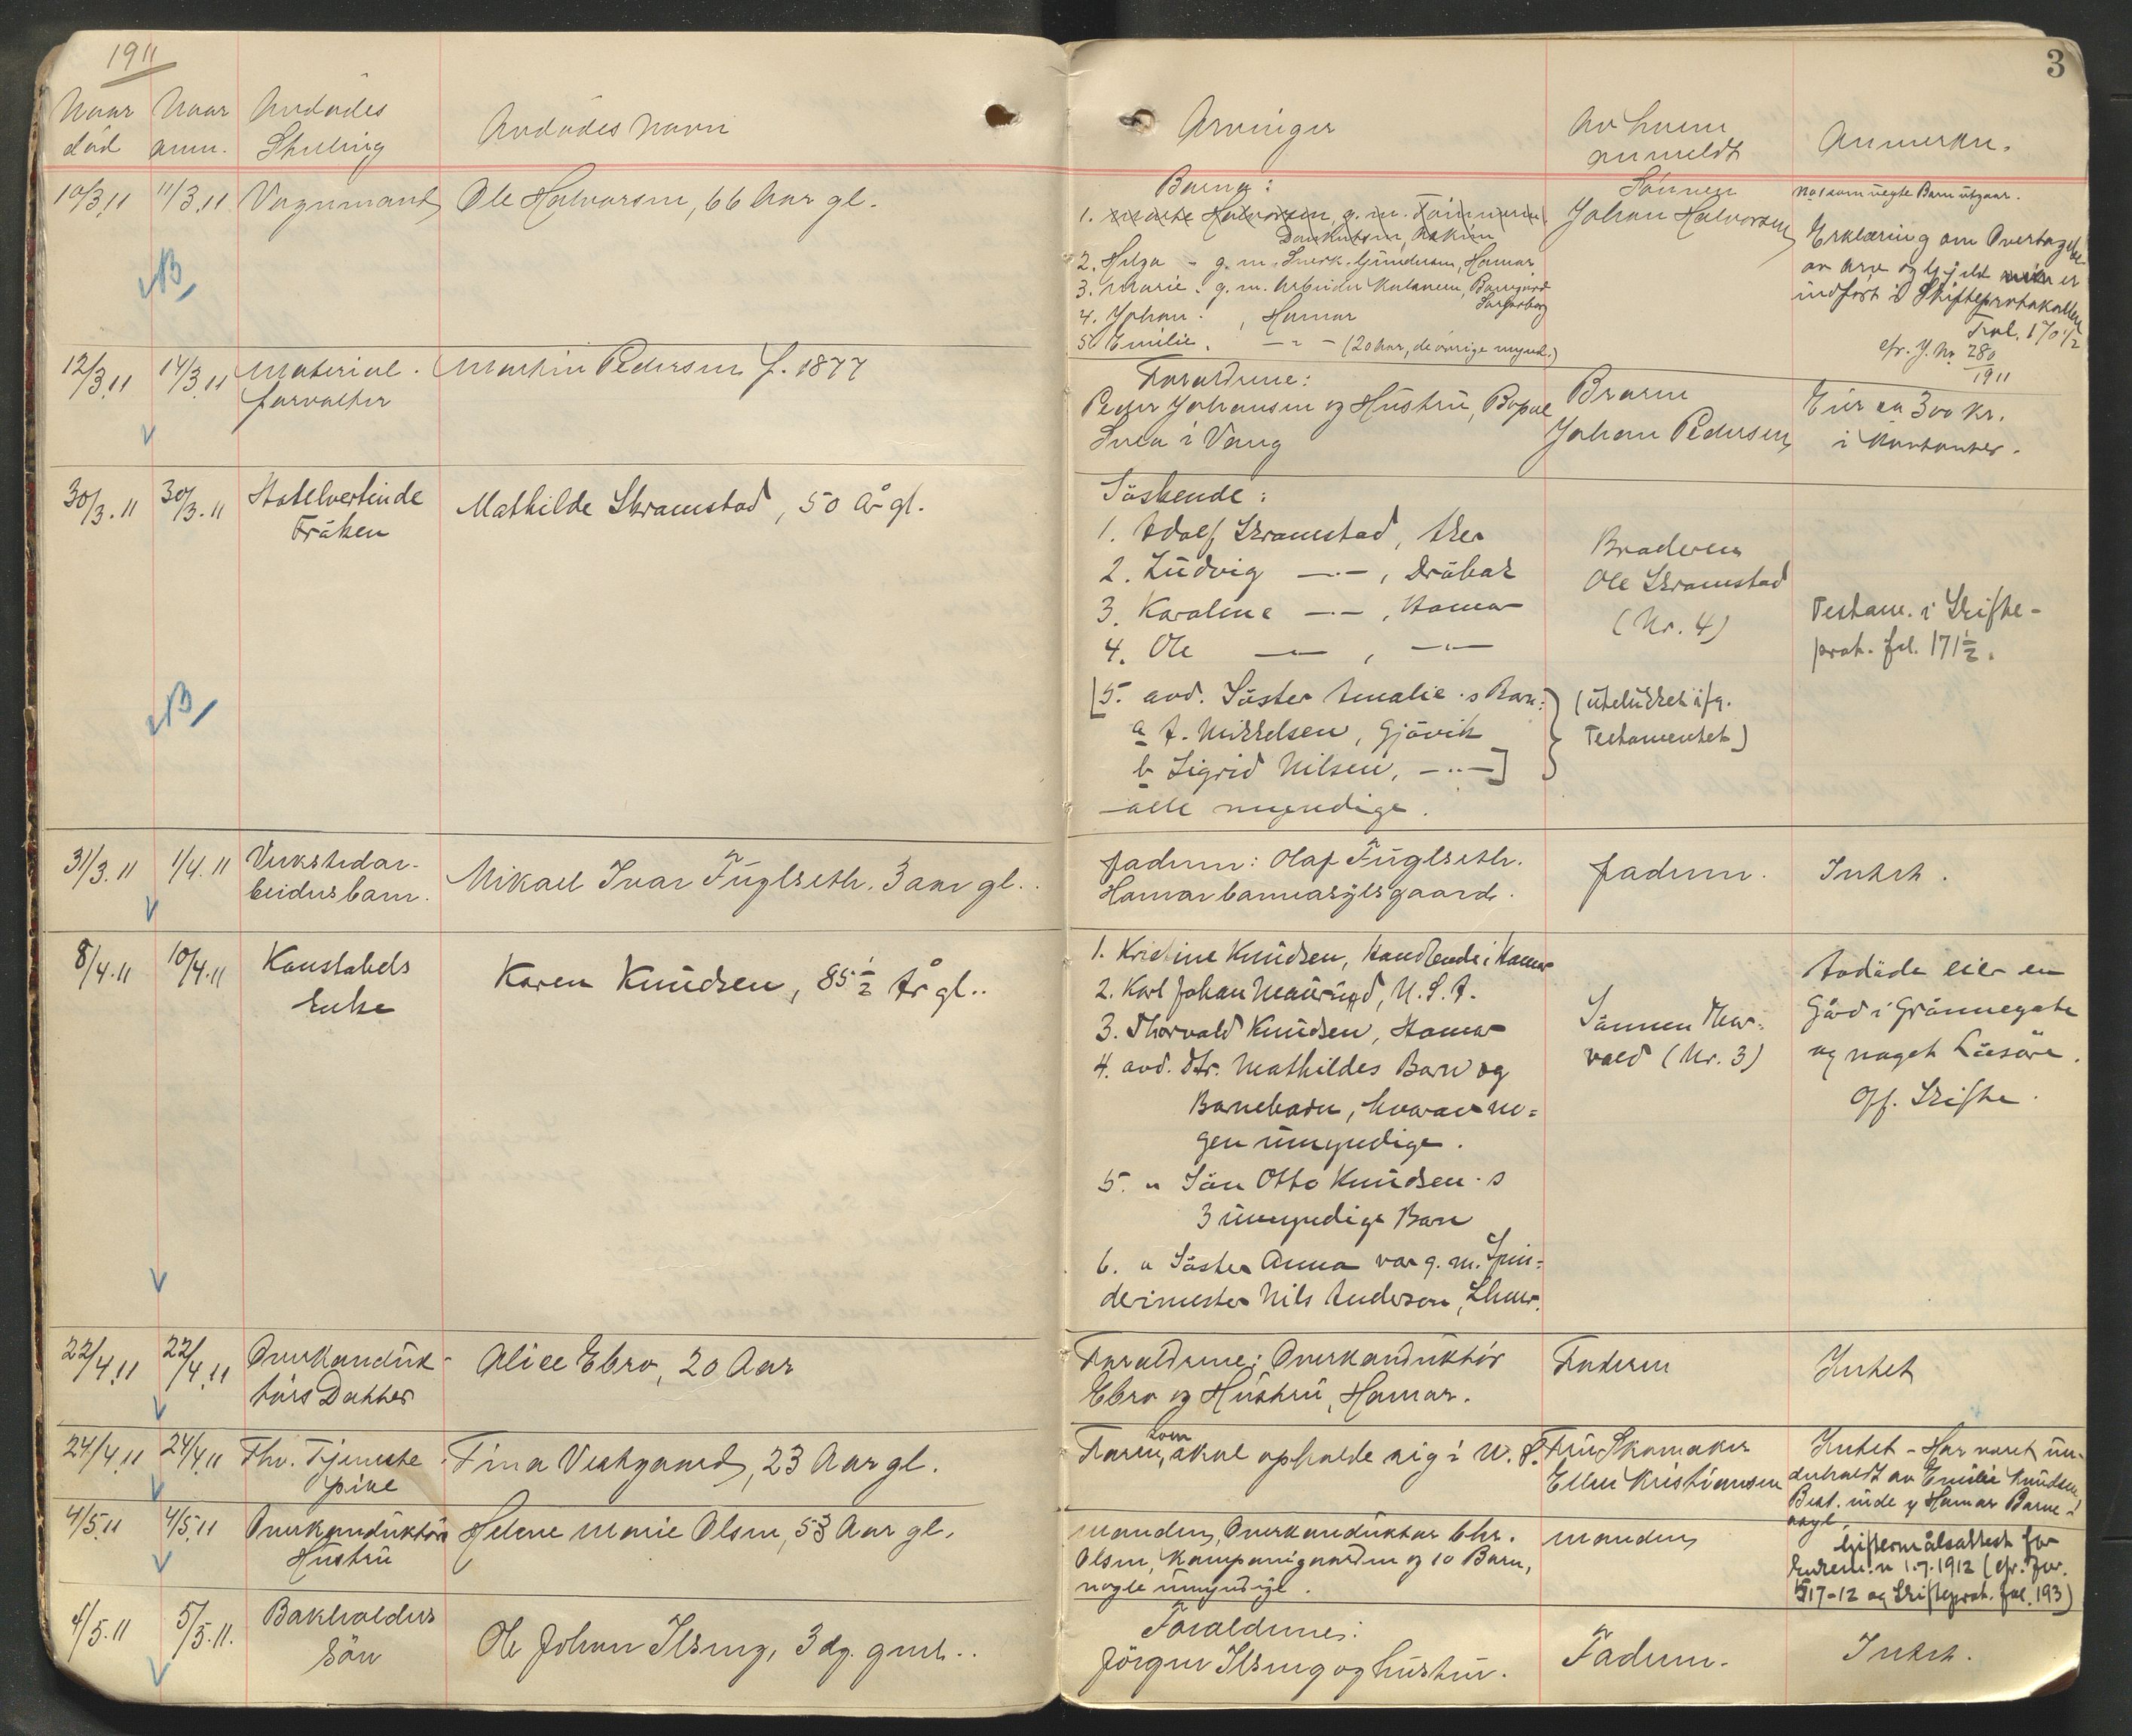 1911
3
Naar død
Naar anm.
Avdødes Stilling
Avdødes Navn
Arvinger
Av hvem anmeldt
Anmerkn.
10/3.11 11/3.11 Vognmand Ole Halvorsen, 66 Aar gl.
Barn:
1. Halvorsen, g. m.
2. Helga - g. m. Snerk. Gundersen, Hamar
3. Marie - g. m. Arbeider
Sarpsborg
4. Johan - , Hamar
5. Emilie, — " — (20 aar, de øvrige mynd.)
Sønnen
Johan Halvorsen
No 1 som uegte Barn utgaar.
Erklæring om Overtagelse
av Arv og Gjeld er
indført i Skifteprotokollen
Fol. 170 1/2
cfr. J. Nr. 280
1911
NB
12/3.11 14/3.11 Material-
forvalter
Martin Pedersen f. 1877
Forældrene:
Peder Johansen og Hustru, Bopæl
i Vang
Broren
Johan Pedersen
Eier ca 300 kr.
i Kontanter.
30/3.11 30/3.11 Hotelvertinde
Frøken
Mathilde Skramstad, 50 År gl.
Søskende:
1. Adolf Skramstad, Aker
2. Ludvig —"—, Drøbak
3. Karoline —"—, Hamar
4. Ole —"—, —"—
[5. avd. Søster Amalie's Barn:
a A. Mikkelsen, Gjøvik
b Sigrid Nilsen, —"—]
alle myndige.
(utelukket ifg.
Testamentet)
Broderen
Ole Skramstad
(Nr. 4)
Testam. i Skifte-
prot. fol. 171 1/2.
NB
31/3.11 1/4.11 Verkstedar-
beidersbarn.
Mikael Ivar Fuglseth. 3 aar gl.
Faderen: Olaf Fuglseth.
Hamar barneasylsgaard.
Faderen.
Intet.
8/4.11 10/4.11 Konstabels
Enke
Karen Knudsen, 85 1/2 År gl..
1. Kristine Knudsen, Handlende i Hamar
2. Karl Johan Maurud, U. S. A.
3. Thorvald Knudsen, Hamar
4. avd. Dtr. Mathildes Barn og
Barnebarn, hvorav no=
gen umyndige.
5. " Søn Otto Knudsen's
3 umyndige Barn
6. " Søster Anna var g. m. Spin=
derimester Nils Anderson,
Sønnen Thor-
vald (Nr. 3)
Avdøde eier en
Gård i Grønnegate
og noget Løsøre.
Off. Skifte.
22/4.11 22/4.11 Overkonduk-
tørs Datter
Alice Ebro, 20 Aar
Forældrene: Overkonduktør
Ebro og Hustru, Hamar.
Faderen
Intet
24/4.11 24/4.11 Fhv. Tjeneste-
pike
Tina Vestgaard, 23 Aar gl.
Faren, som skal opholde sig i U. S.
Fru Skomaker
Ellen Kristiansen
Intet - Har været un-
derholdt av Emilie Knudsen
Best.inde v Hamar Barne-
asyl.
4/5.11 4/5.11 Overkonduktørs
Hustru
Helene Marie Olsen, 53 Aar gl.
Manden, Overkonduktør Chr.
Olsen, Kompanigaarden og 10 Barn,
nogle umyndige.
Manden
Giftermålsattest for
Enkem. n 1.7.1912 (cfr. Jnr.
517-12 og Skifteprot. fol. 193)
4/5.11 5/5.11. Bokholders
Søn
Ole Johan Ilseng, 3 dg. gml..
Forældrene:
Jörgen Ilseng og hustru.
Faderen.
Intet.